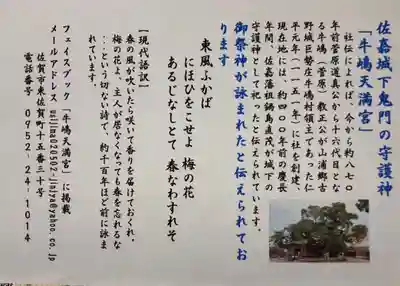 佐嘉城下鬼門の守護神
「牛嶋天満宮」
社伝によれば、今から約八七〇
年前菅原道真公から十六代目とな
る牛嶋(菅原)教正公が山浦郷吉
野城巨勢庄牛嶋村領主であった仁
平元年(一一五一年)に社を創建、
現在地には、約四〇〇年前の慶長
年間、佐嘉藩祖鍋島直茂が城下の
守護神として祀ったと伝えられています。
御祭神が詠まれたと伝えられてお
ります
東風ふかば
にほひをこせよ 梅の花
あるじなしとて 春なわすれそ
【現代語訳】
春の風が吹いたら咲いて香りを届けておくれ、
梅の花よ、主人が居なくなっても春を忘れるな
...という切ない詩で、約千百年ほど前に詠ま
れています。
フェイスブック「牛嶋天満宮」に掲載
メールアドレス usijima020502-jinjya@yahoo.co.jp
佐賀市東佐賀町十五番三十号
電話番号 0952-24-1014